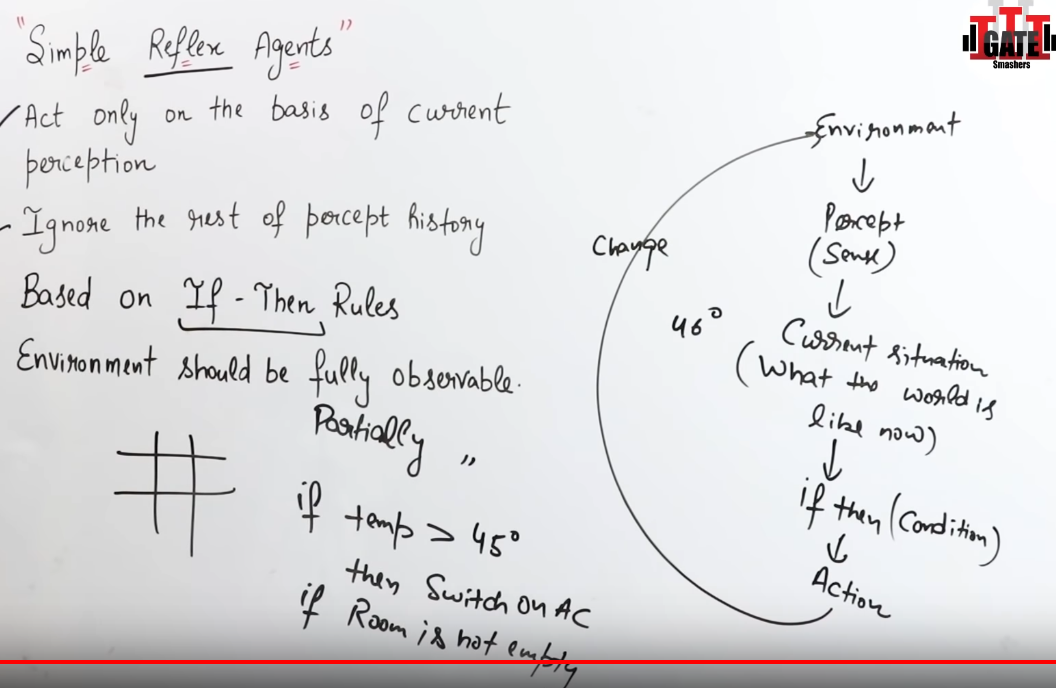 "Simple Reflex Agents"
Act only on the basis of current
perception
Ignore the rest of percept history
Based on If-Then Rules
Environment should be fully observable.
Partially "
if temp > 45°
then Switch on AC
if Room is not empty
Environment
Percept
(Sense)
Change
46°
Current situation
(What the world is
like now)
if then (Condition)
Action
GATE
Smashers